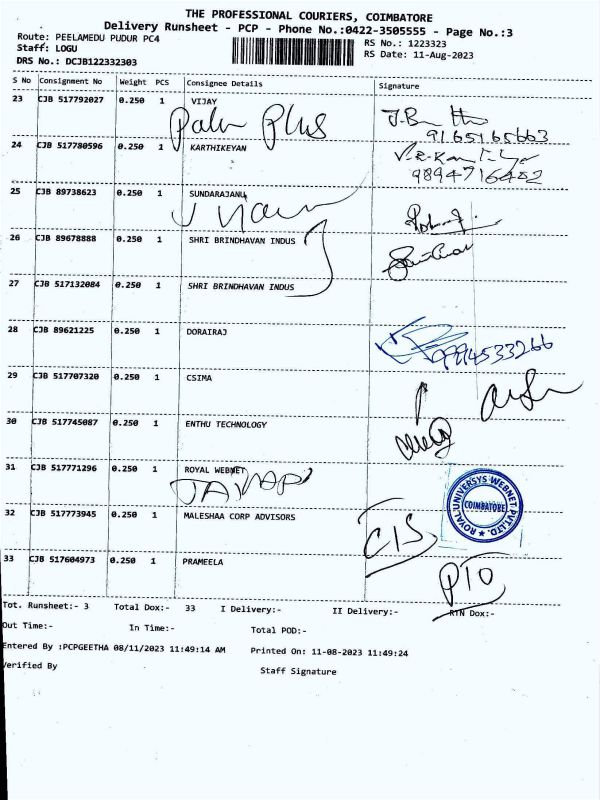 THE PROFESSIONAL COURIERS, COIMBATORE
Delivery Runsheet - PCP - Phone No.:0422-3505555 - Page No.:3
Route: PEELAMEDU PUDUR PC4
RS No.: 1223323
Staff: LOGU
RS Date: 11-Aug-2023
DRS No.: DCJB122332303
S No Consignment No Weight PCS Consignee Details Signature
23 CJB 517792027 0.250 1 VIJAY
Palm Plus
9165165663
24 CJB 517780596 0.250 1 KARTHIKEYAN
9894716402
25 CJB 89738623 0.250 1 SUNDARAJANU
26 CJB 89678888 0.250 1 SHRI BRINDHAVAN INDUS
27 CJB 517132084 0.250 1 SHRI BRINDHAVAN INDUS
28 CJB 89621225 0.250 1 DORAIRAJ
9994533266
29 CJB 517707320 0.250 1 CSIMA
30 CJB 517745087 0.250 1 ENTHU TECHNOLOGY
31 CJB 517771296 0.250 1 ROYAL WEBNET
ROYALUNIVERSYS WEBNET PVT.LTD. ★
COIMBATORE
32 CJB 517773945 0.250 1 MALESHAA CORP ADVISORS
CIS
33 CJB 517604973 0.250 1 PRAMEELA
PTO
Tot. Runsheet:- 3 Total Dox:- 33 I Delivery:- II Delivery:- RTN Dox:-
Out Time:- In Time:- Total POD:-
Entered By :PCPGEETHA 08/11/2023 11:49:14 AM Printed On: 11-08-2023 11:49:24
Verified By Staff Signature